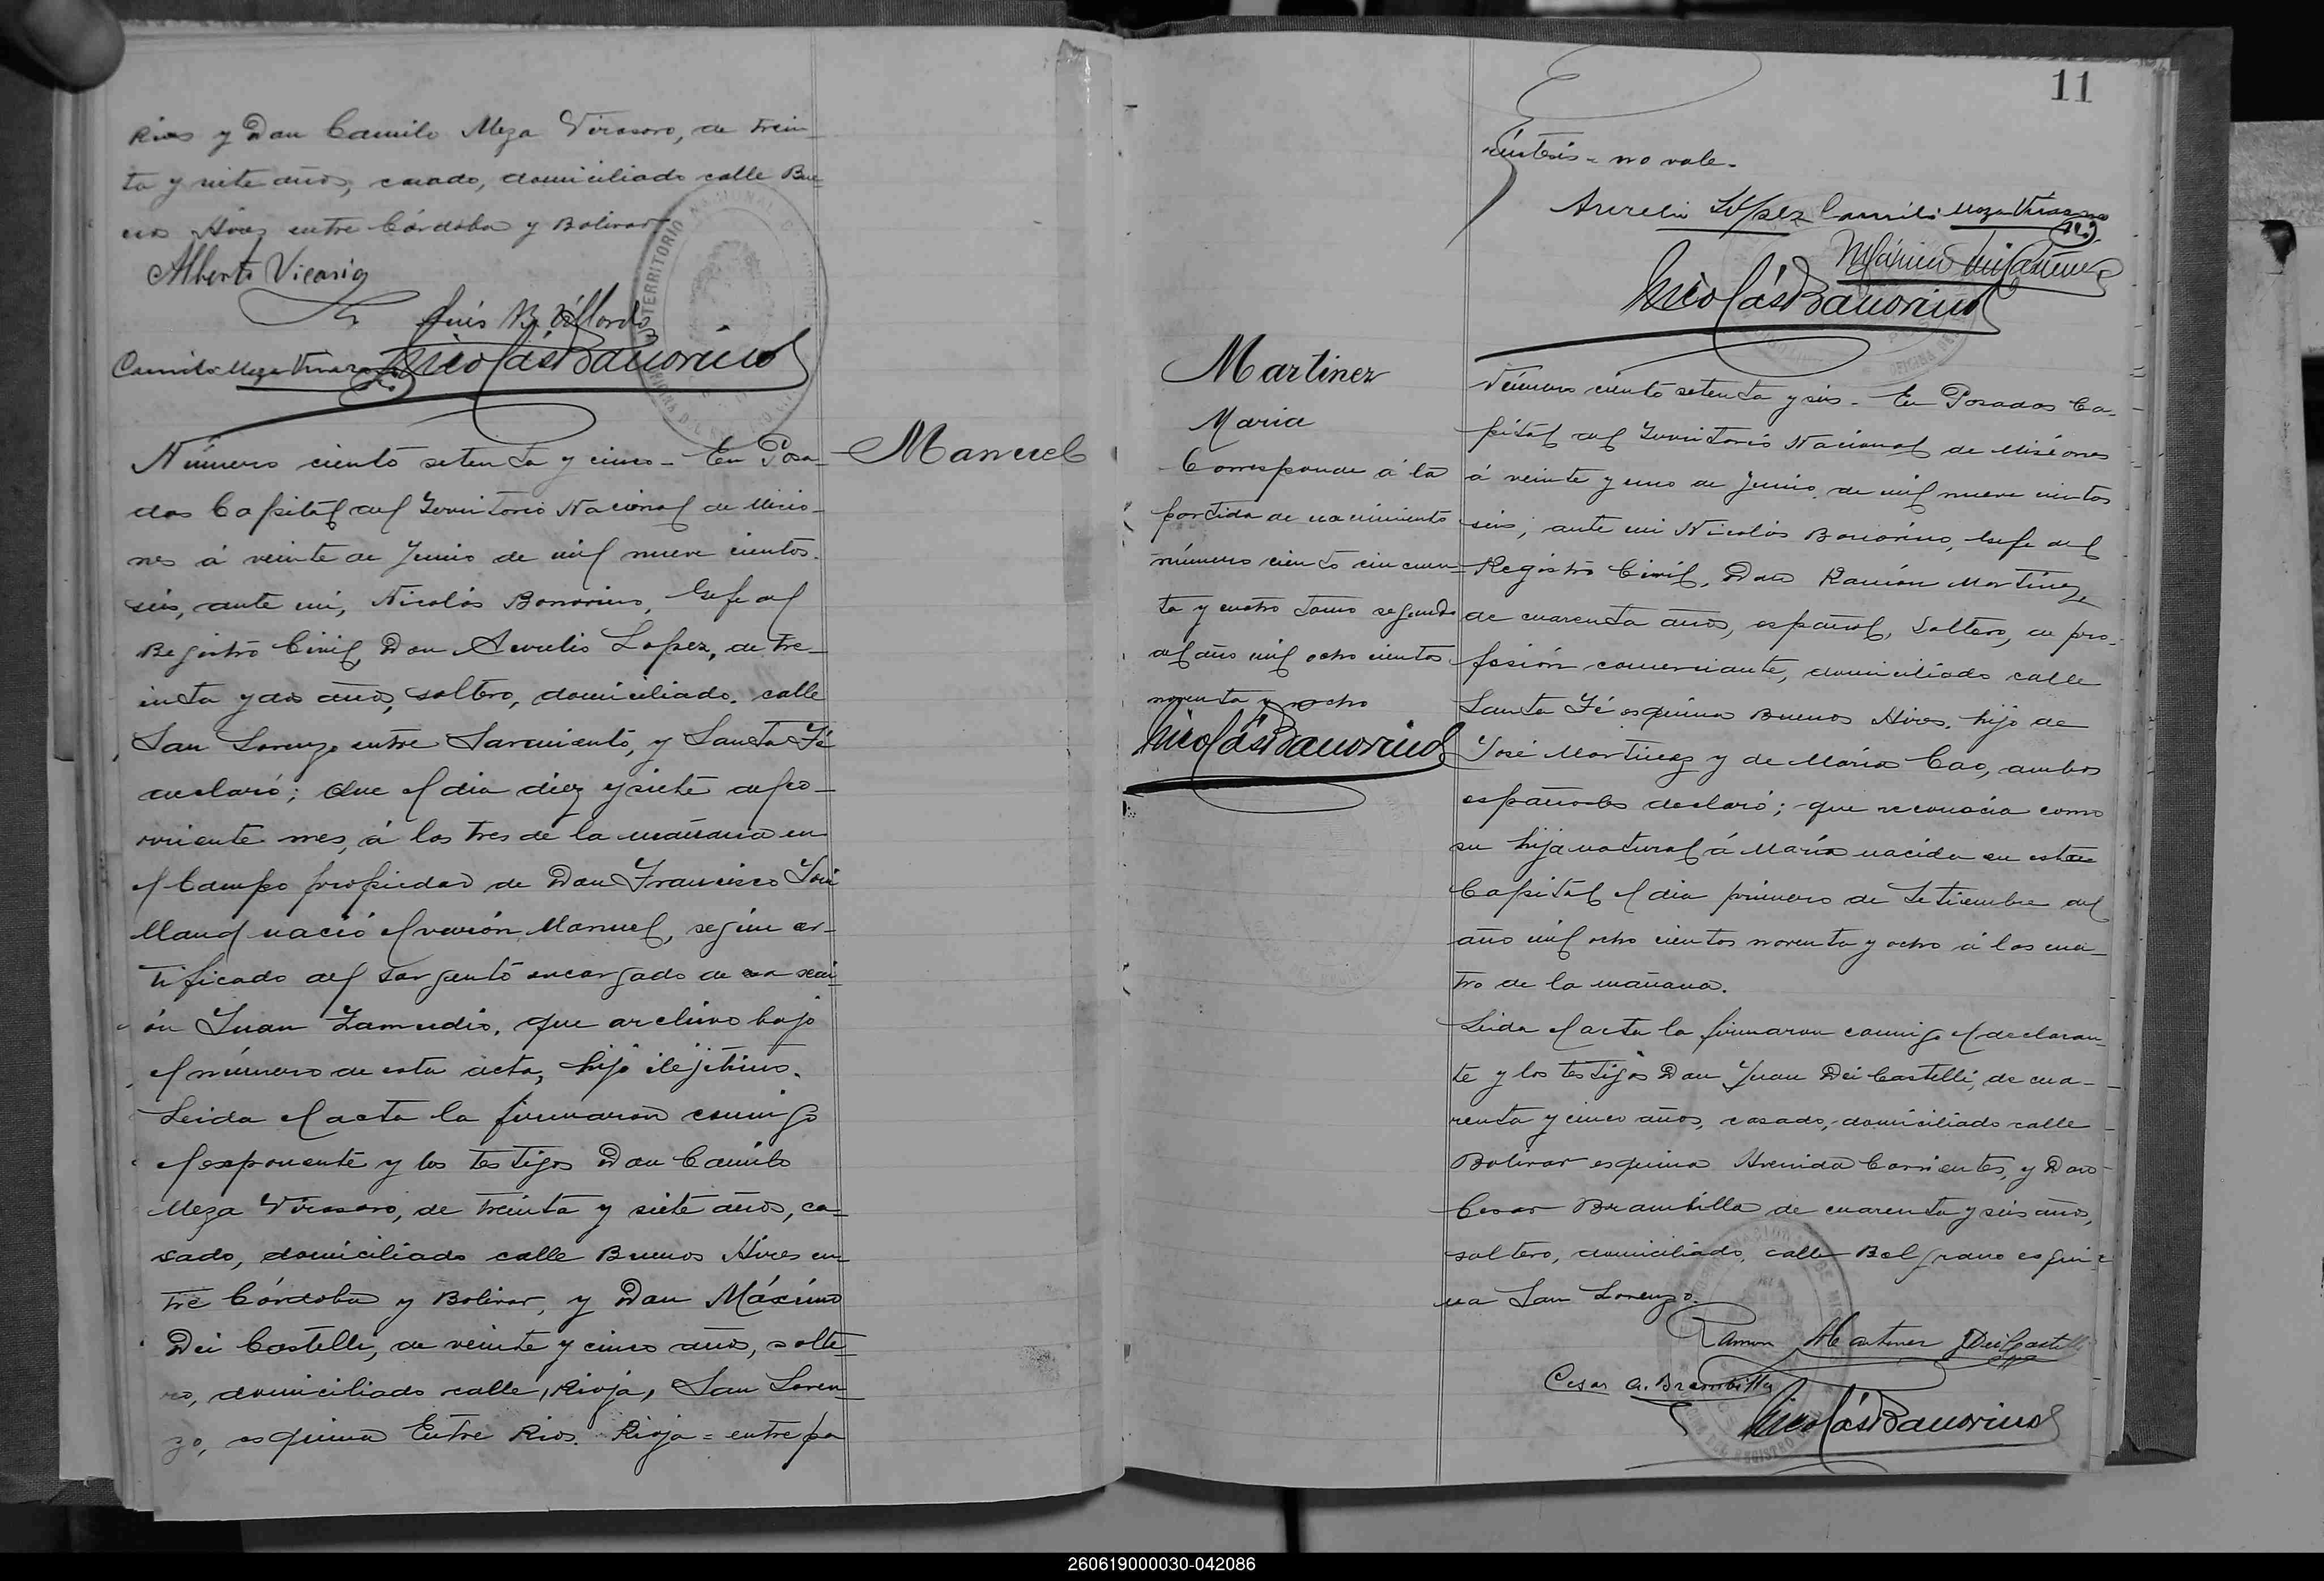 Rios y Don Camilo Meza Virasoro, de trein-
ta y siete años, casado, domiciliado calle Bue-
nos Aires entre Córdoba y Bolivar.
Alberto Vicario
Luis B. Villordo
Camilo Meza Virasoro
Nicolás Bonorino
Manuel
Número ciento setenta y cinco - En Posa-
das Capital del Territorio Nacional de Misio-
nes á veinte de Junio de mil nueve cientos
seis, ante mi, Nicolás Bonorino, Gefe del
Registro Civil, Don Aurelio Lopez, de tre-
inta y dos años, soltero, domiciliado calle
San Lorenzo entre Sarmiento, y Santa Fé
declaró; Que el dia diez y siete del co-
rriente mes, á las tres de la mañana en
el Campo propiedad de Don Francisco José
nació el varón Manuel, según cer-
tificado del sargento encargado de esa secci-
ón Juan Zamudio, que archivo bajo
el número de esta acta, hijo ilejítimo.
Leida el acta la firmaron conmigo
el exponente y los testigos Don Camilo
Meza Virasoro, de treinta y siete años, ca-
sado, domiciliado calle Buenos Aires en-
tre Córdoba y Bolivar, y Don Máximo
Dei Castelli, de veinte y cinco años, solte-
ro, domiciliado calle, Rioja, San Loren-
zo, esquina Entre Rios. Rioja = entre pa
11
réntesis = no vale -
Aurelio López Camilo Meza Virasoro
Nicolás Bonorino
Martinez
Maria
Corresponde á la
partida de nacimiento
número ciento cincuen-
ta y cuatro tomo segundo
del año mil ocho cientos
noventa y ocho
Nicolás Bonorino
Número ciento setenta y seis - En Posadas Ca-
pital del Territorio Nacional de Misiones
á veinte y uno de Junio de mil nueve cientos
seis, ante mi Nicolás Bonorino, Gefe del
Registro Civil, Don Ramón Martinez
de cuarenta años, español, soltero, de pro-
fesión comerciante, domiciliado calle
Santa Fé esquina Buenos Aires, hijo de
José Martinez y de María Cao, ambos
españoles declaró; que reconocia como
su hija natural á María nacida en esta
Capital el dia primero de Setiembre del
año mil ocho cientos noventa y ocho á las cua-
tro de la mañana.
Leida el acta la firmaron conmigo el declaran-
te y los testigos Don Juan Dei Castelli, de cua-
renta y cinco años, casado, domiciliado calle
Bolivar esquina Avenida Corrientes, y Don
Cesar Brambilla de cuarenta y seis años,
soltero, domiciliado, calle Belgrano esqui-
na San Lorenzo.
Ramon Martinez J Dei Castelli
Cesar A. Brambilla
Nicolás Bonorino
260619000030-042086